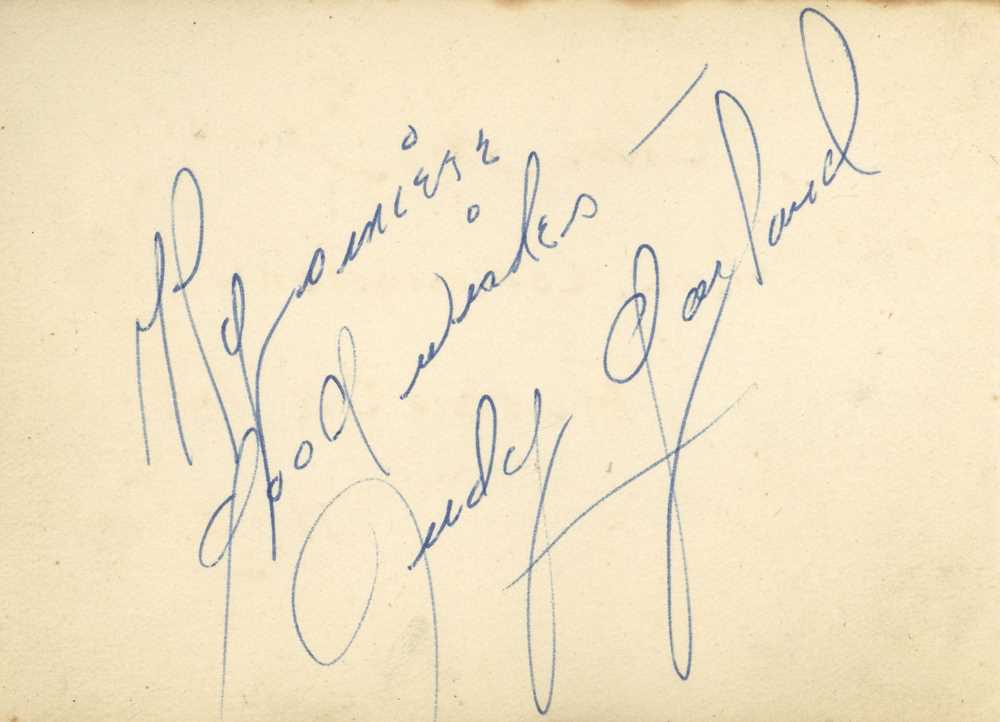 My sincere
good wishes —
Judy Garland